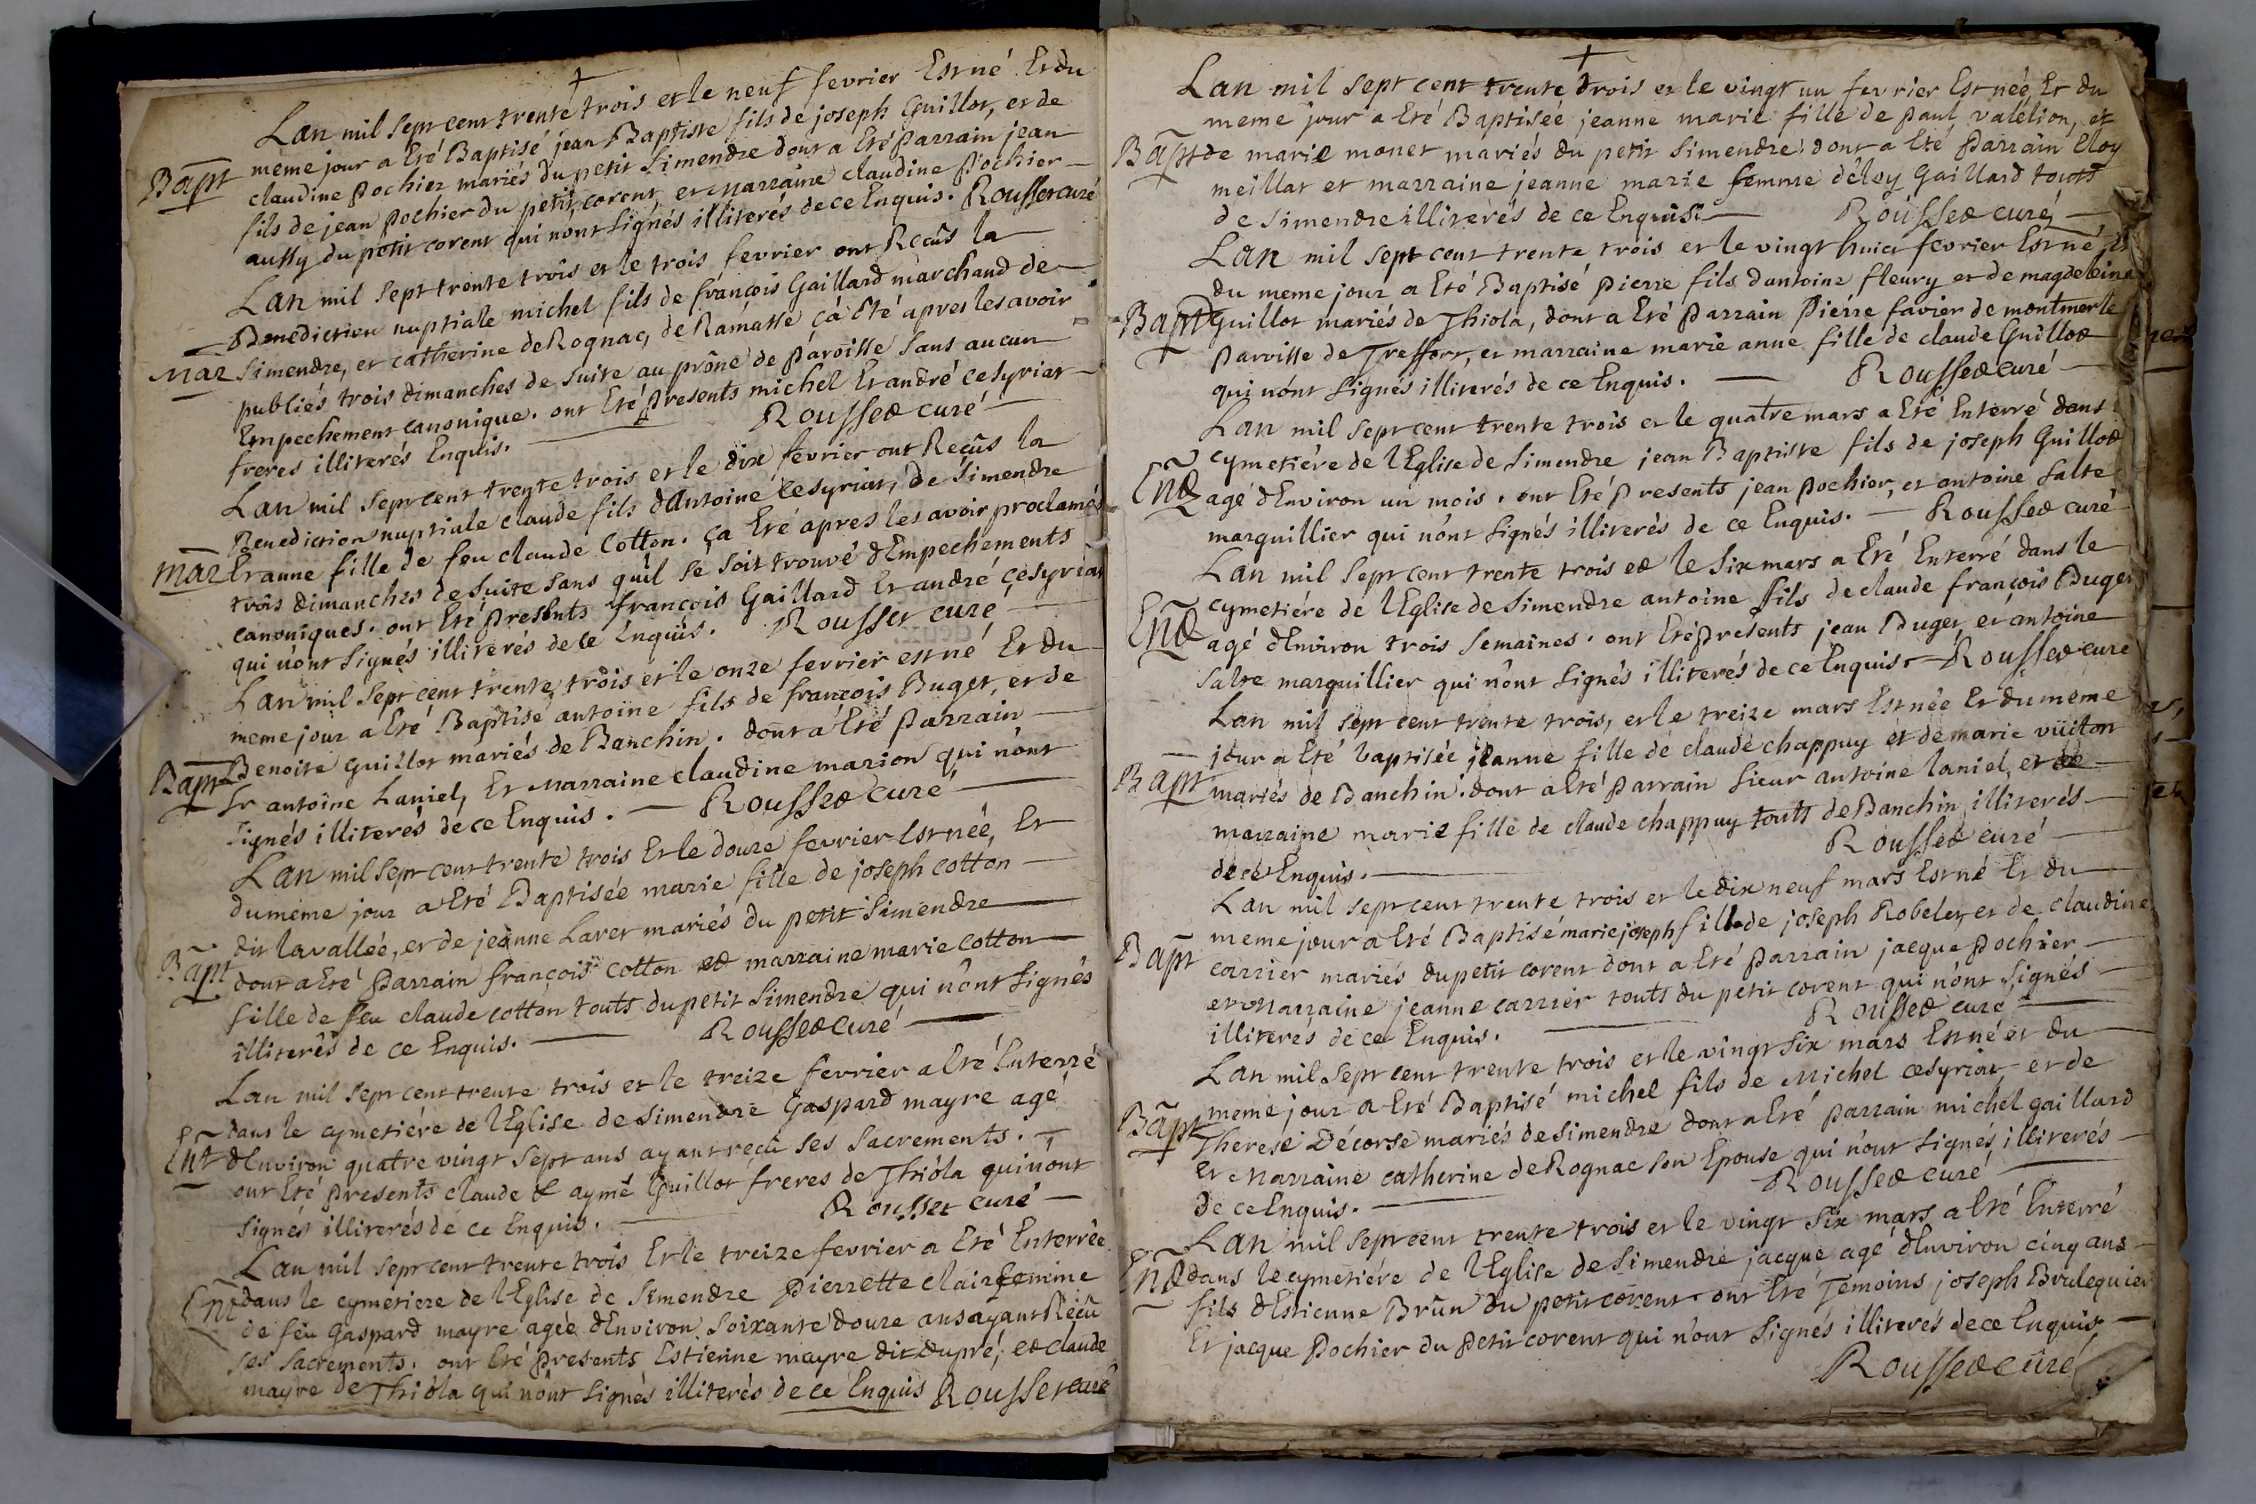 Lan mil sept cent trente trois et le neuf fevrier Est né Et du
meme jour a Eté Baptisé jean Baptiste fils de joseph Guillot, et de
Bapt claudine Pochier mariés du petit Simendre dont a Eté Parrain jean
fils de jean Pochier du petit corent, et Marraine claudine Pochier
aussy du petit corent qui nont signés illiterés de ce Enquis. Rousset curé
Lan mil sept trente trois et le trois fevrier ont Reçûs la
Benediction nuptiale michel fils de françois Gaillard marchand de
Mar Simendre, et catherine deRognac, de Ramasse çà Eté apres les avoir
publiés trois dimanches de suite au prône de paroisse sans aucun
Empechement canonique. ont Eté Presents michel Et andré cesyriat
freres illiterés Enquis. Rousset curé
Lan mil sept cent trente trois et le dix fevrier ont Reçûs la
Benediction nuptiale claude fils dAntoine Cesyriat, de Simendre
Mar Et anne fille de feu claude Cotton. ça Eté apres les avoir proclamés
trois dimanches de suite sans quil se soit trouvé dEmpechements
canoniques. ont Eté Presents françois Gaillard Et andré Cesyriat
qui nont signés illiterés de ce Enquis. Rousset curé
Lan mil sept cent trente trois et le onze fevrier est né Et du
meme jour a Eté Baptisé antoine fils de françois Buget, et de
Bapt Benoite Guillot mariés de Banchin. dont a Eté Parrain
Sr antoine Laniel, Et Marraine claudine marion qui nont
signés illiterés de ce Enquis. Rousset curé
Lan mil sept cent trente trois Et le douze fevrier Est née, Et
du meme jour a Eté Baptisée marie fille de joseph cotton
dit lavallée, et de jeanne Laret mariés du petit Simendre
Bapt dont a Eté Parrain françois cotton et marraine marie cotton
fille de feu claude cotton touts du petit Simendre qui nont signés
illiterés de ce Enquis. Rousset curé
Lan mil sept cent trente trois et le treize fevrier a Eté Enterré
dans le cymetiére de lEglise de Simendre Gaspard mayre agé
Ent dEnviron quatre vingt sept ans ayant reçû ses sacrements.
ont Eté Presents claude & aymé Guillot freres de Thióla qui nont
signés illiterés de ce Enquis. Rousset curé
Lan mil sept cent trente trois Et le treize fevrier a Eté Enterrée
Ent dans le cymetiere de lEglise de Simendre Pierrette clair femme
de feu Gaspard mayre agée dEnviron soixante douze ans ayant Reçû
ses sacrements. ont Eté Presents Estienne mayre dit dupré, et claude
mayre de Thióla qui nont signés illiterés de ce Enquis Rousset curé
Lan mil sept cent trente trois et le vingt un fevrier Est née Et du
meme jour a Eté Baptisée jeanne marie fille de Paul valélion, et
Bapt de marie monet mariés du petit Simendre. dont a Eté Parrain Eloy
meillat et marraine jeanne marie femme déloy Gaillard touts
de Simendre illiterés de ce Enquis. Rousset curé
Lan mil sept cent trente trois et le vingt huict fevrier Est né Et
du meme jour a Eté Baptisé Pierre fils dantoine fleury et de magdeleine
Bapt Guillot mariés de Thiola, dont a Eté Parrain Pierre favier de montmerle
Paroisse de Treffort, et marraine marie anne fille de claude Guillot
qui nont signés illiterés de ce Enquis. Rousset curé
Lan mil sept cent trente trois et le quatre mars a Eté Enterré dans
cymetiére de lEglise de Simendre jean Baptiste fils de joseph Guillot
Ent agé dEnviron un mois. ont Eté Presents jean Pochier, et antoine salte
marguillier qui nont signés illiterés de ce Enquis. Rousset curé
Lan mil sept cent trente trois et le six mars a Eté Enterré dans le
cymetiére de lEglise de Simendre antoine fils de claude françois Buget
Ent agé dEnviron trois semaines. ont Eté Presents jean Buget, et antoine
salte marguillier qui nont signés illiterés de ce Enquis Rousset curé
Lan mil sept cent trente trois, et le treize mars Est née Et du meme
jour a Eté baptisée jeanne fille de claude chappuy et de marie vüiton
Bapt mariés de Banchin. dont a Eté Parrain sieur antoine laniel, et
marraine marie fille de claude chappuy touts de Banchin illiterés
de ce Enquis. Rousset curé
Lan mil sept cent trente trois et le dix neuf mars Est né Et du
meme jour a Eté Baptisé marie joseph fille de joseph Robelet, et de claudine
Bapt carrier mariés du petit corent dont a Eté Parrain jacque Pochier
et Marraine jeanne carrier touts du petit corent qui nont signés
illiterés de ce Enquis. Rousset curé
Lan mil sept cent trente trois et le vingt six mars Est né et du
meme jour a Eté Baptisé michel fils de Michel cesyriat, et de
Bapt Therese Décorse mariés de Simendre dont a Eté Parrain michel gaillard
Et Marraine catherine deRognac son Epouse qui nont signés, illiterés
de ce Enquis. Rousset curé
Lan mil sept cent trente trois et le vingt six mars a Eté Enterré
Ent dans le cymetiére de lEglise de Simendre jacque agé dEnviron cinq ans
fils dEstienne Brûn du petit corent. ont Eté Témoins joseph Brulequier
Et jacque Pochier du petit corent qui nont signés illiterés de ce Enquis
Rousset curé